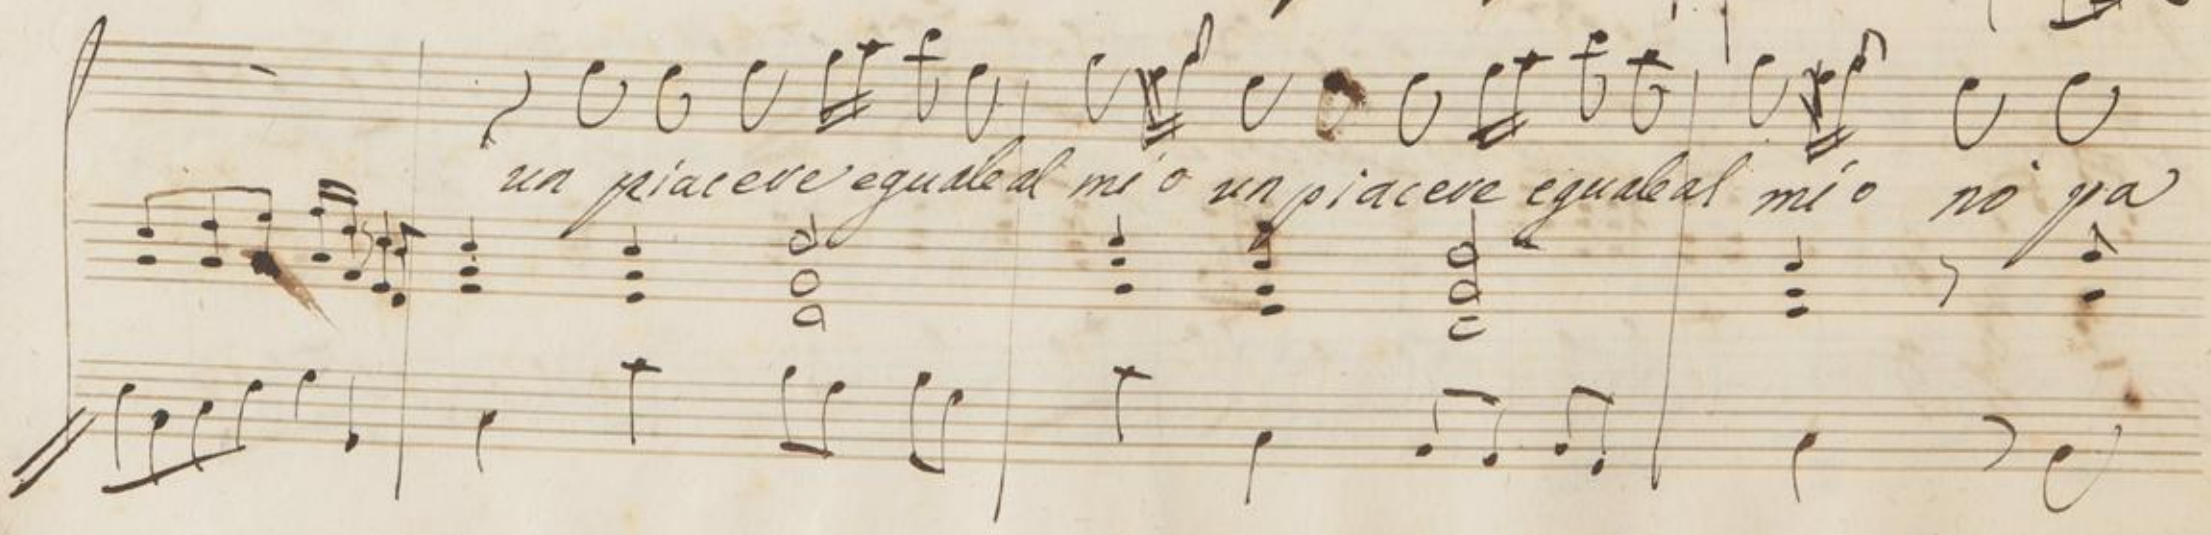 un piacere eguale al mio un piacere eguale al mio nò